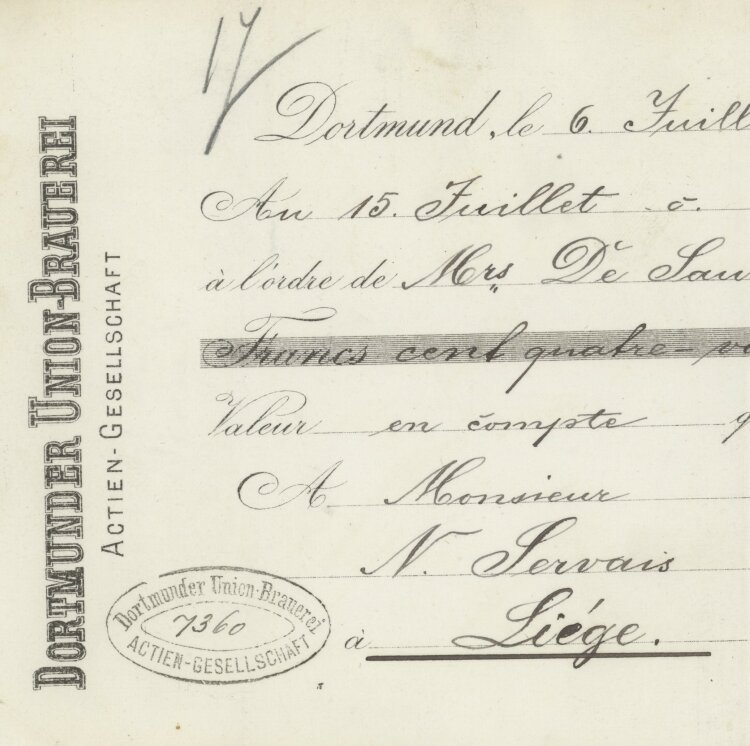 17
DORTMUNDER UNION-BRAUEREI
ACTIEN-GESELLSCHAFT
Dortmund, le 6. Juill
Au 15. Juillet c.
à l'ordre de Mrs De Sau
Francs cent quatre-vi
Valeur en compte
A Monsieur
N. Servais
à Liége.
Dortmunder Union-Brauerei
7360
ACTIEN-GESELLSCHAFT